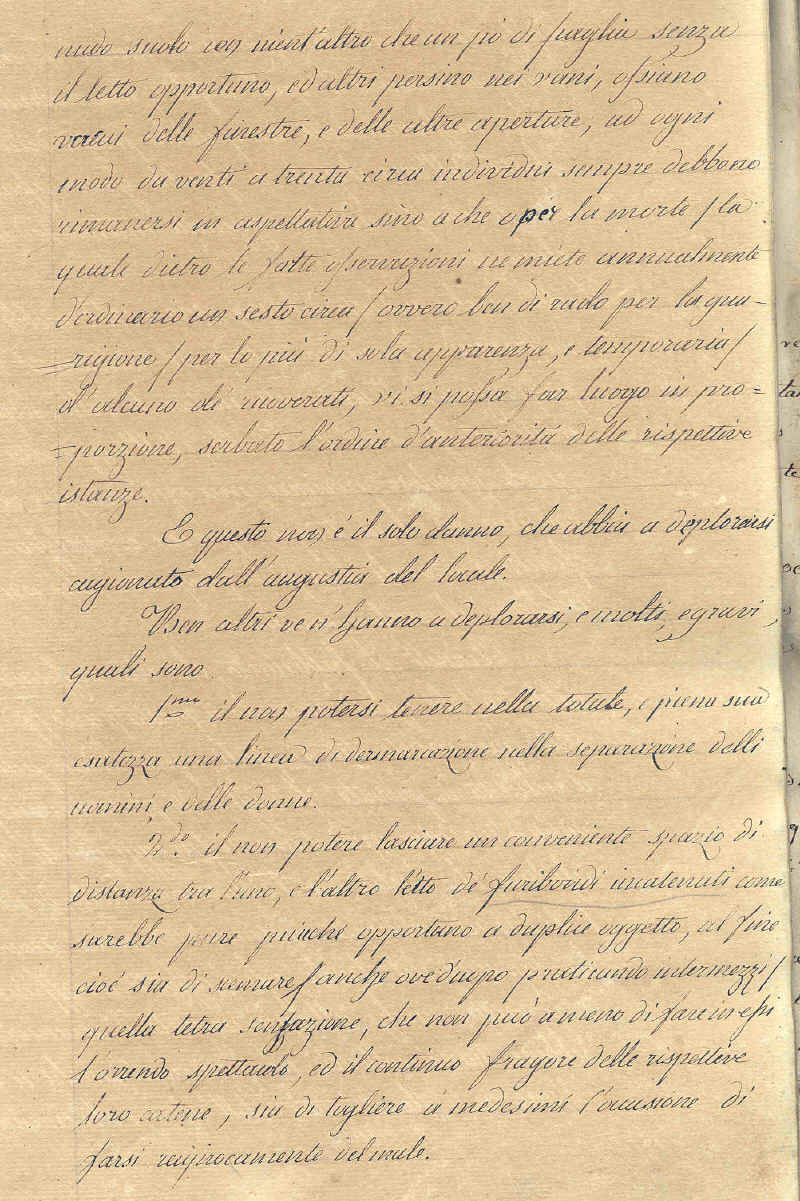 nudo suolo con nient'altro che un pò di paglia senza
il letto opportuno, ed altri persino nei vani, ossiano
vacui delle finestre, e delle altre aperture, ad ogni
modo da venti a trenta circa individui sempre debbono
rimanersi in aspettativa sino a che o per la morte / la
quale dietro le fatte osservazioni ne miete annualmente
d'ordinario un sesto circa / ovvero ben di rado per la gua=
=rigione / per lo più di sola apparenza, e temporaria /
d'alcuno de' ricoverati, vi si possa far luogo in pro=
=porzione, serbato l'ordine d'anteriorità delle rispettive
istanze.
E questo non è il solo danno, che abbia a deplorarsi
cagionato dall'augustia del locale.
Ben altri ve n'hanno a deplorarsi, e molti, e gravi,
quali sono
1mo il non potersi tenere nella totale, e piena sua
esatezza una linea di demarcazione nella separazione delli
uomini, e delle donne.
2do. il non potere lasciare un conveniente spazio di
distanza tra l'uno, e l'altro letto de' furibondi incatenati come
sarebbe pure più che opportuno a duplice oggetto, al fine
cioè sia di scemare / anche ove d'uopo praticando intermezzi /
quella tetra sensazione, che non può a meno di fare in essi
l'orrendo spettacolo, ed il continuo fragore delle rispettive
loro catene, sia di togliere a medesimi l'occasione di
farsi reciprocamente del male.